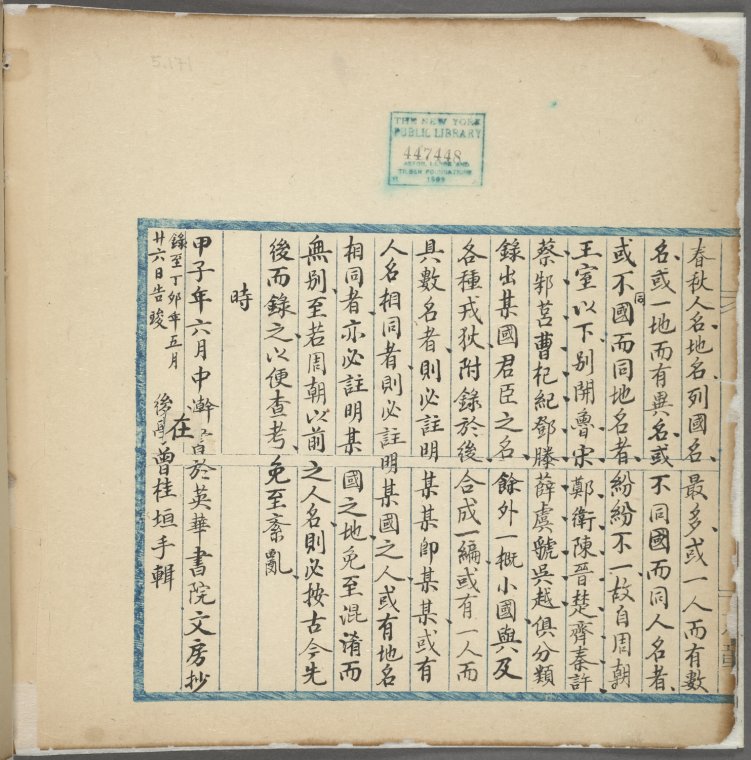 5.171
THE NEW YORK
PUBLIC LIBRARY
447448
ASTOR, LENOX AND
TILDEN FOUNDATIONS
1909
春秋人名地名列國名最多或一人而有數
名或一地而有異名或不同國而同人名者
或不同國而同地名者紛紛不一故自周朝
王室以下別開魯宋鄭衛陳晉楚齊秦許
蔡邾莒曹杞紀鄧滕薛虞虢吳越俱分類
錄出某國君臣之名餘外一概小國與及
各種戎狄附錄於後合成一編或有一人而
具數名者則必註明某某即某某或有
人名相同者則必註明某國之人或有地名
相同者亦必註明某國之地免至混淆而
無別至若周朝以前之人名則必按古今先
後而錄之以便查考免至紊亂
時
甲子年六月中澣書於英華書院文房抄
錄至丁卯年五月
廿六日告竣
在
後學曾桂垣手輯